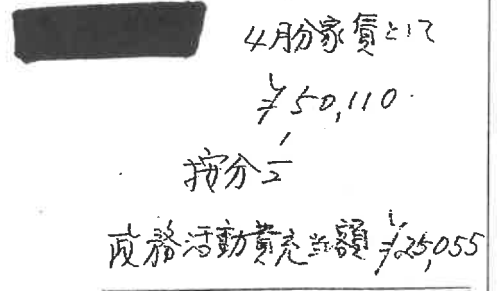 4月分家賃として
¥50,110.
按分1/2
政務活動費充当額 ¥25,055